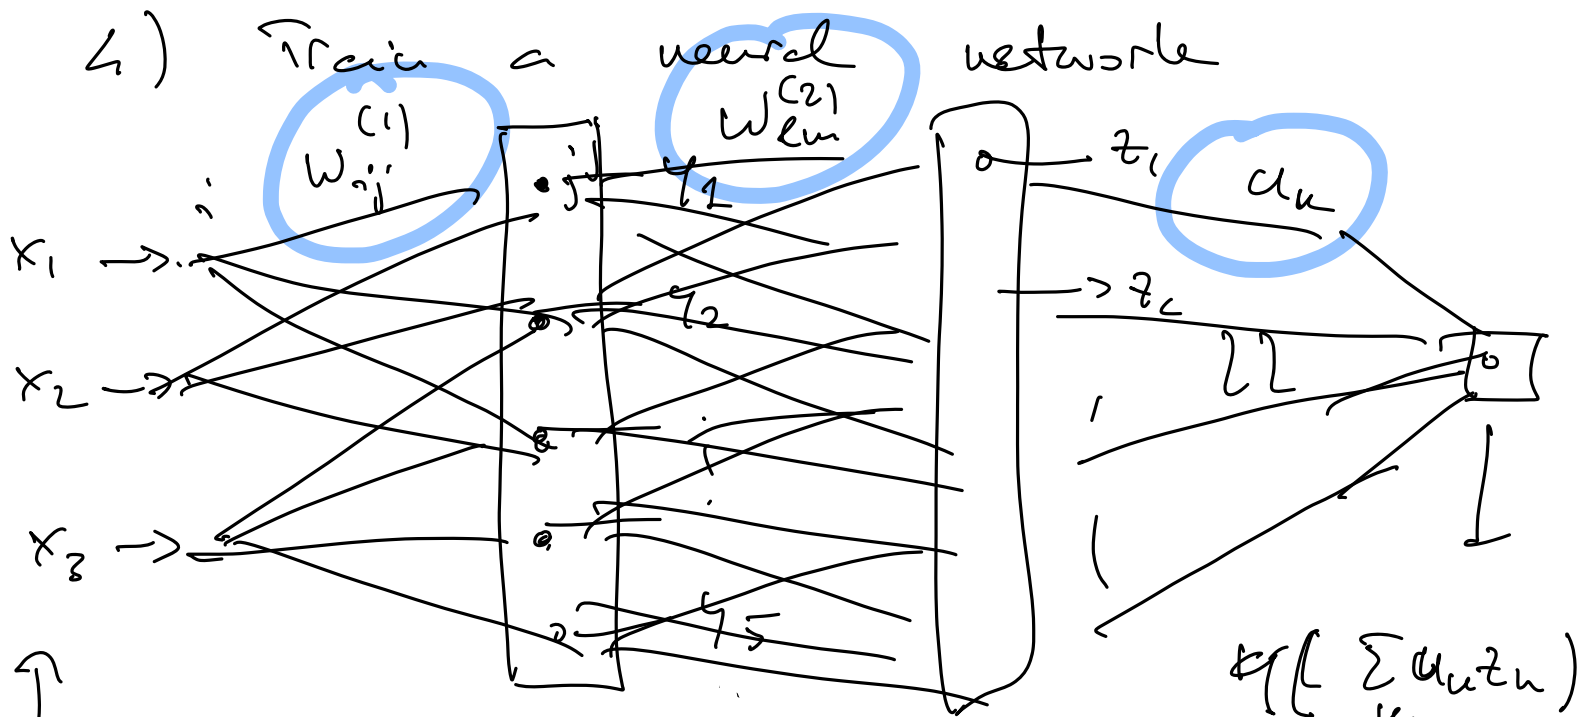 4) Train a neural network
w_{ij}^{(1)}
w_{lm}^{(2)}
u_k
i
j
x_1 →
x_2 →
x_3 →
y_1
y_2
y_5
z_1
z_2
( Σ u_k z_k )